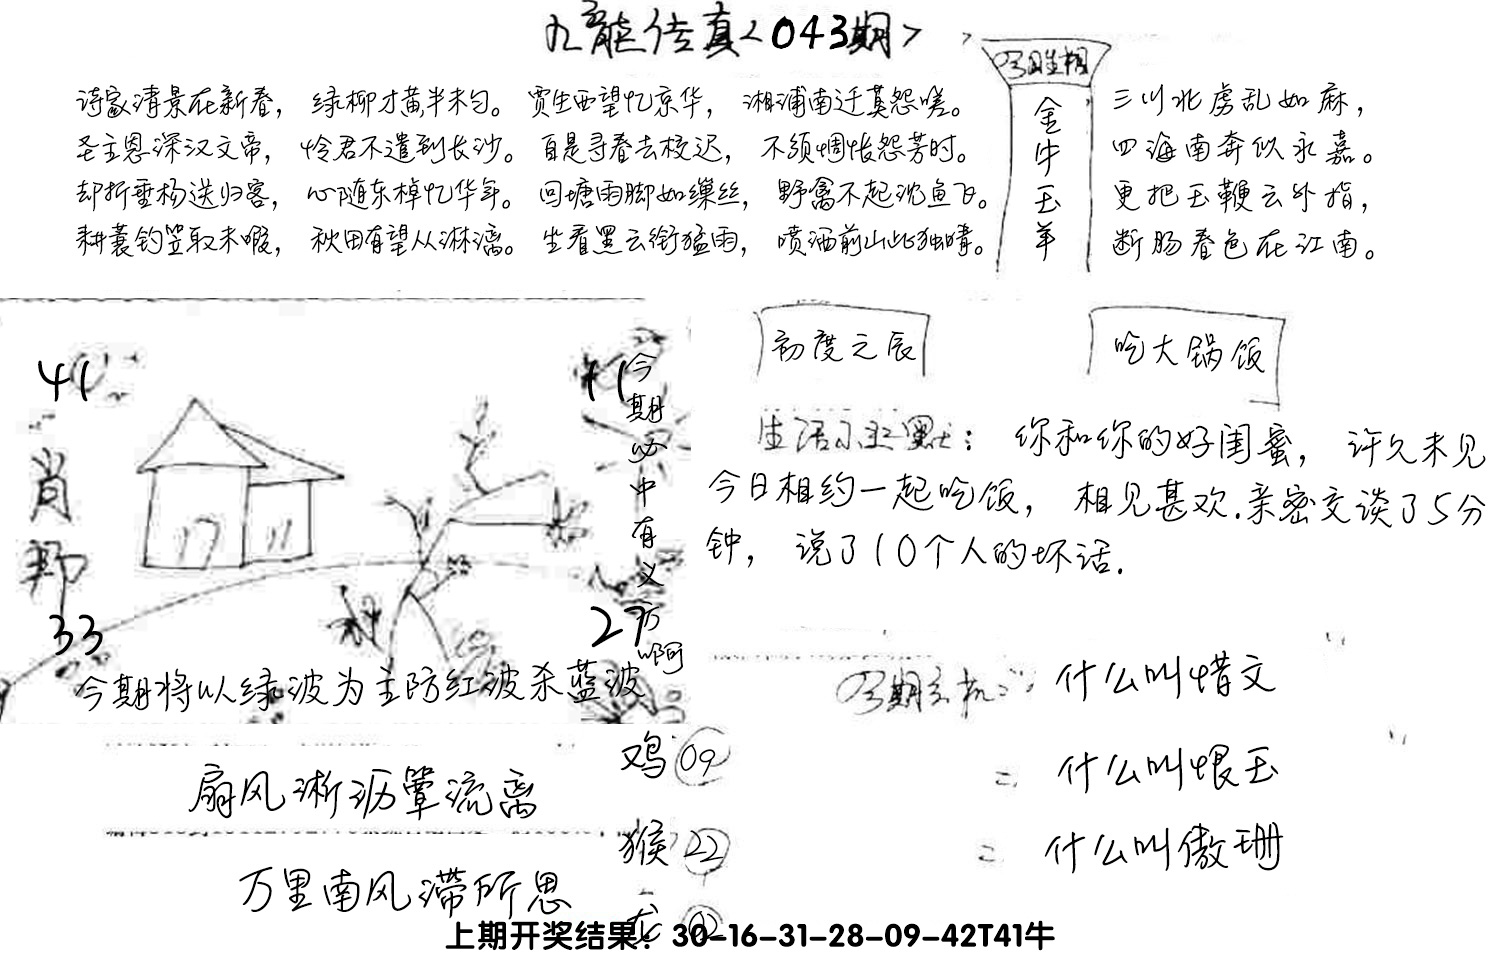 九龙传真<043期>
诗家清景在新春，绿柳才黄半未匀。贾生西望忆京华，湘浦南迁莫怨嗟。
圣主恩深汉文帝，怜君不遣到长沙。自是寻春去校迟，不须惆怅怨芳时。
却折垂杨送归客，心随东棹忆华年。回塘雨脚如缫丝，野禽不起沈鱼飞。
耕蓑钓笠取未暇，秋田有望从淋漓。坐看黑云衔猛雨，喷洒前山此独晴。
今日生相
金牛玉羊
三川北虏乱如麻，
四海南奔似永嘉。
更把玉鞭云外指，
断肠春色在江南。
41
11
肖
33
27
今期必中有义方啊
今期将以绿波为主防红波杀蓝波
初度之辰
吃大锅饭
生活小幽默：你和你的好闺蜜，许久未见
今日相约一起吃饭，相见甚欢.亲密交谈了5分
钟，说了10个人的坏话.
今期玄机：什么叫惜文
= 什么叫恨玉
= 什么叫傲珊
扇风淅沥簟流离
万里南风滞所思
鸡 09
猴 22
龙 02
上期开奖结果：30-16-31-28-09-42T41牛